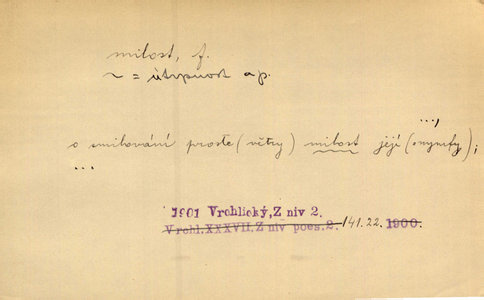 milost, f.
~ = útrpnost ap.
...,
o smilování proste (větry) milost její (onymfy);
...
1901 Vrchlický, Z niv 2.
Vrchl.XXXVII, Z niv poes.2. 141.22. 1900.